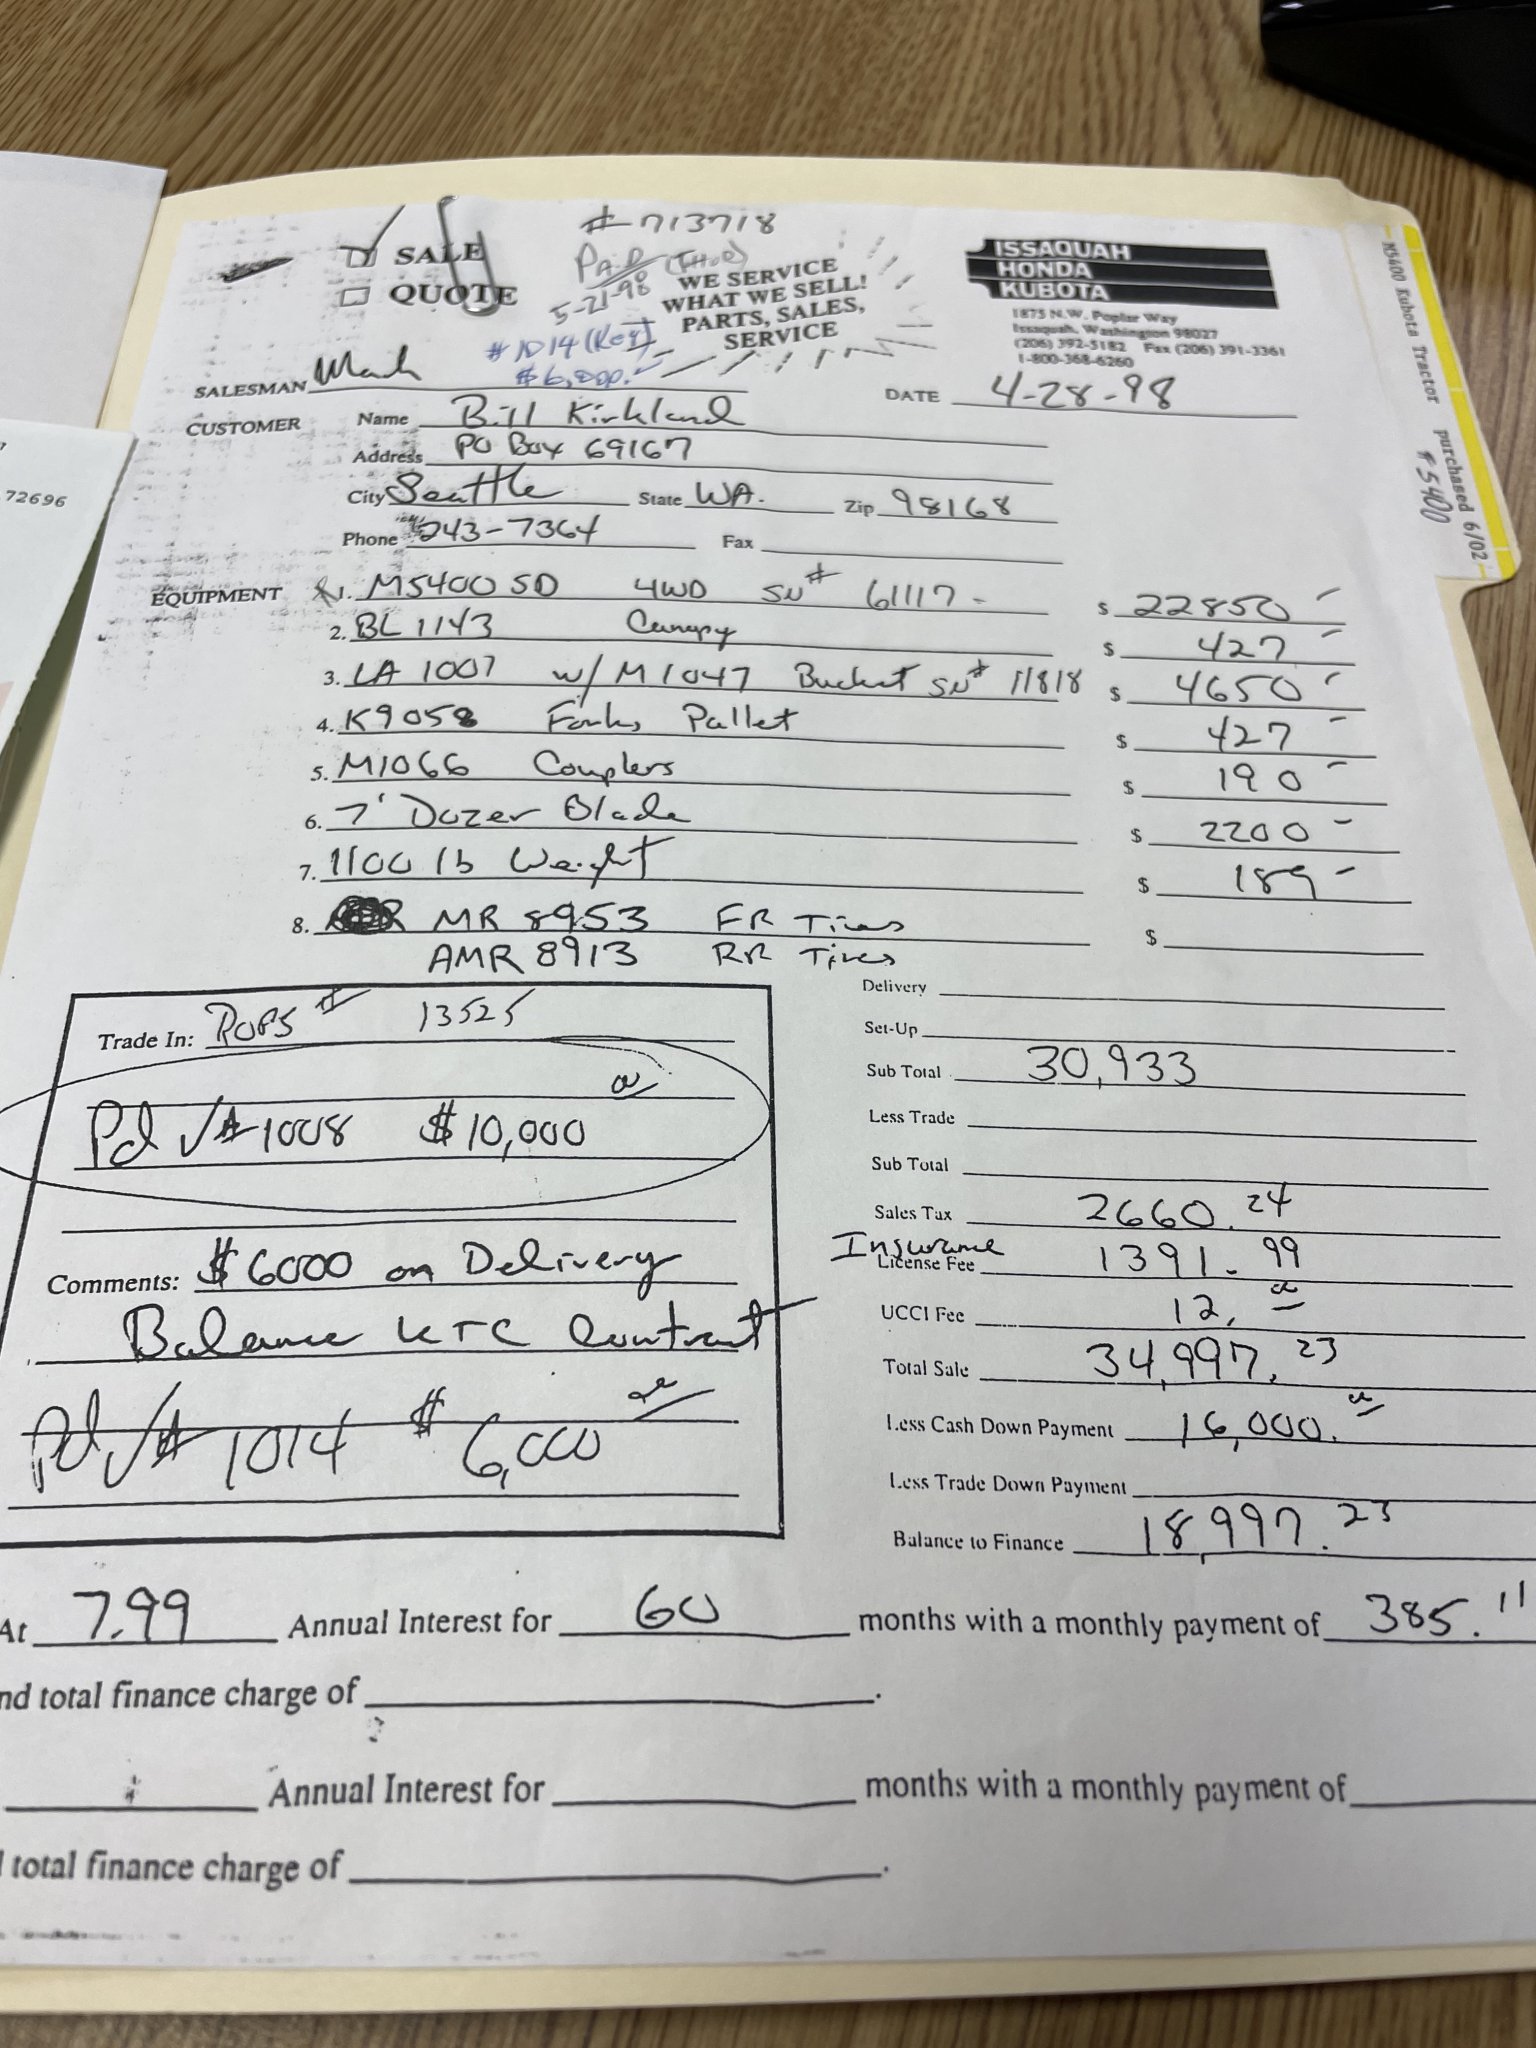 #713718
SALE
QUOTE
PAID
5-21-98
WE SERVICE
WHAT WE SELL!
PARTS, SALES,
SERVICE
#1014
$6,000.
ISSAQUAH
HONDA
KUBOTA
1875 N.W. Poplar Way
Issaquah, Washington 98027
(206) 392-5182 Fax (206) 391-3361
1-800-368-6260
M5400 Kubota Tractor purchased 6/02
72696
SALESMAN Mark
DATE 4-28-98
CUSTOMER Name Bill Kirkland
Address PO Box 69167
City Seattle State WA. Zip 98168
Phone 243-7364 Fax
EQUIPMENT 1. M5400 SD 4WD SN# 61117 - $ 22850 -
2. BL 1143 Canopy $ 427 -
3. LA 1007 w/ M1047 Bucket SN# 11818 $ 4650 -
4. K9058 Forks Pallet $ 427 -
5. M1066 Couplers $ 190 -
6. 7' Dozer Blade $ 2200 -
7. 1100 lb Weight $ 189 -
8. MR 8953 FR Tires $
AMR 8913 RR Tires
Trade In: ROPS # 13525
Pd √# 1008 $10,000
Comments: $6000 on Delivery
Balance KTC Contract
Pd √# 1014 $6,000
Delivery
Set-Up
Sub Total 30,933
Less Trade
Sub Total
Sales Tax 2660.24
Insurance
License Fee 1391.99
UCCI Fee 12.
Total Sale 34,997.23
Less Cash Down Payment 16,000.
Less Trade Down Payment
Balance to Finance 18,997.23
At 7.99 Annual Interest for 60 months with a monthly payment of 385.11
nd total finance charge of .
Annual Interest for months with a monthly payment of
total finance charge of .